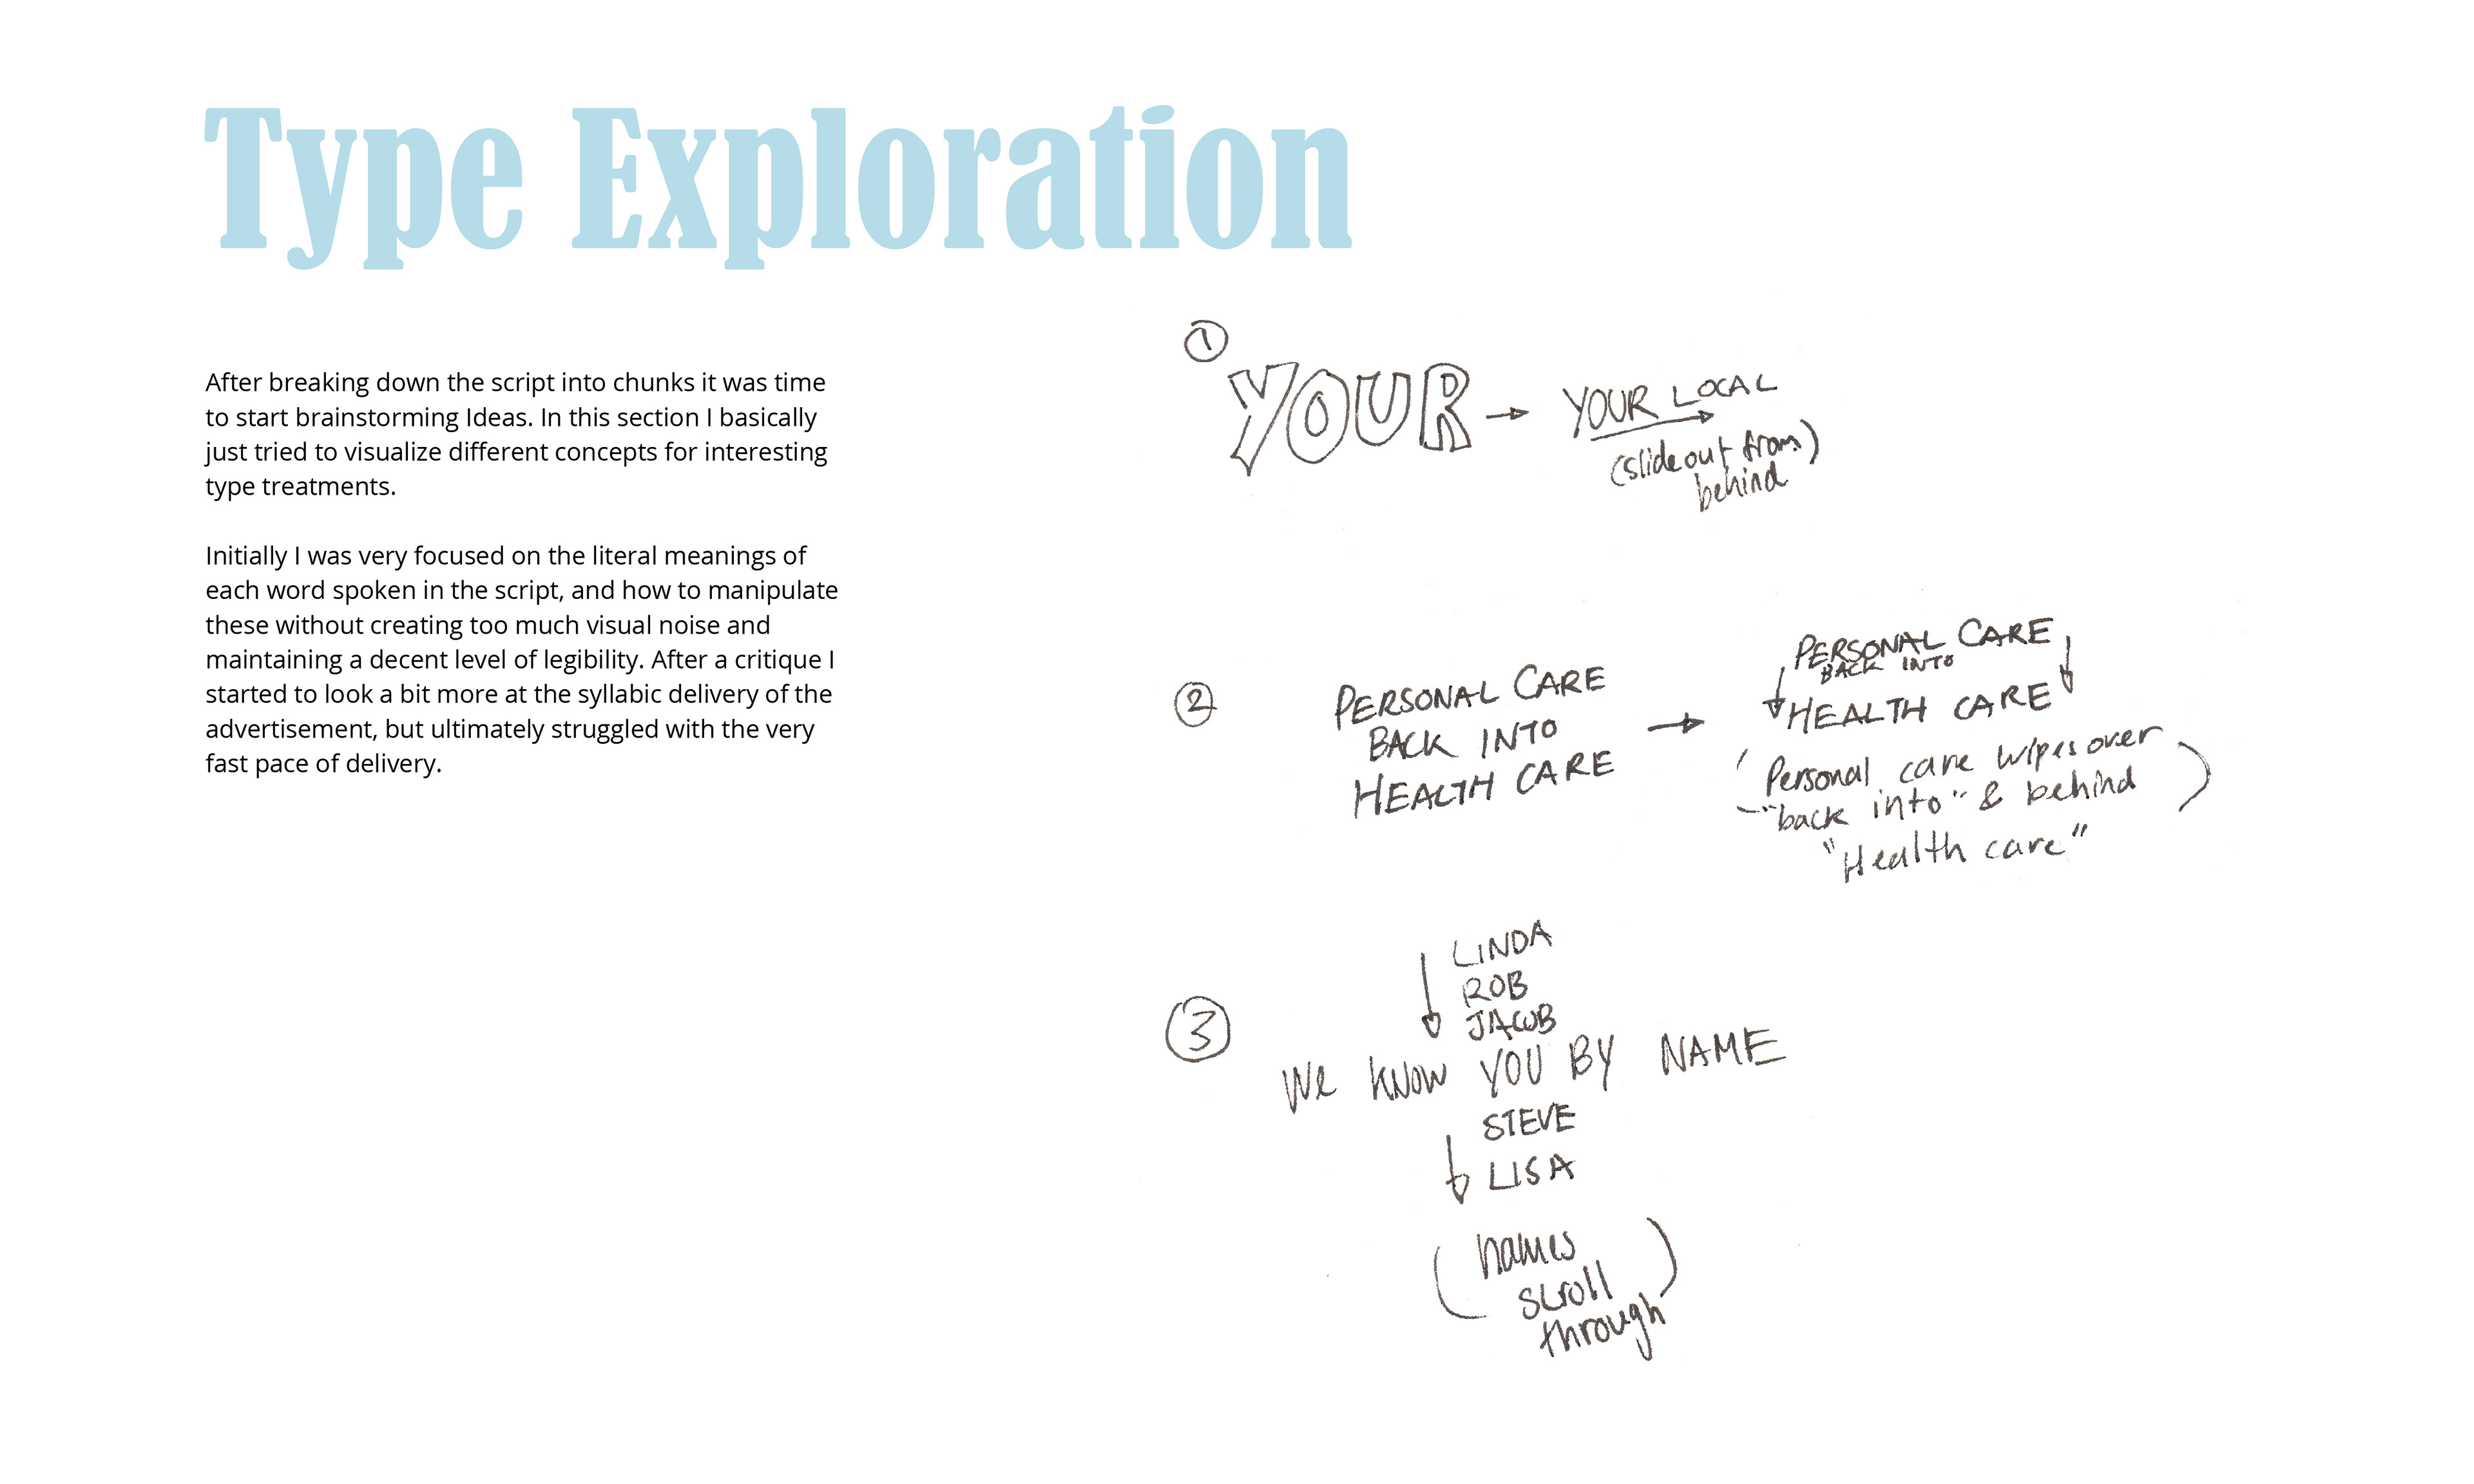 Type Exploration
After breaking down the script into chunks it was time
to start brainstorming Ideas. In this section I basically
just tried to visualize different concepts for interesting
type treatments.
Initially I was very focused on the literal meanings of
each word spoken in the script, and how to manipulate
these without creating too much visual noise and
maintaining a decent level of legibility. After a critique I
started to look a bit more at the syllabic delivery of the
advertisement, but ultimately struggled with the very
fast pace of delivery.
1
YOUR → YOUR LOCAL
(slide out from)
behind
2
PERSONAL CARE
BACK INTO
HEALTH CARE
→
PERSONAL CARE
BACK INTO
HEALTH CARE
(Personal care wipes over
"back into" & behind
"Health care")
3
LINDA
ROB
JACOB
We KNOW YOU BY NAME
STEVE
LISA
(names
scroll
through)